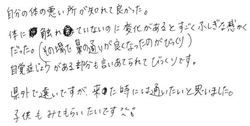 自分の体の悪い所が知れて良かった。
体に触れていないのに変化があるとすごくふしぎな感か
だった。(その場で鼻の通りが良くなったのがびっくり)
自覚症じょうがある部分も言いあてられてびっくりです。
県外で遠いですが、来た時には通いたいと思いました。
子供もみてもらいたいです^^